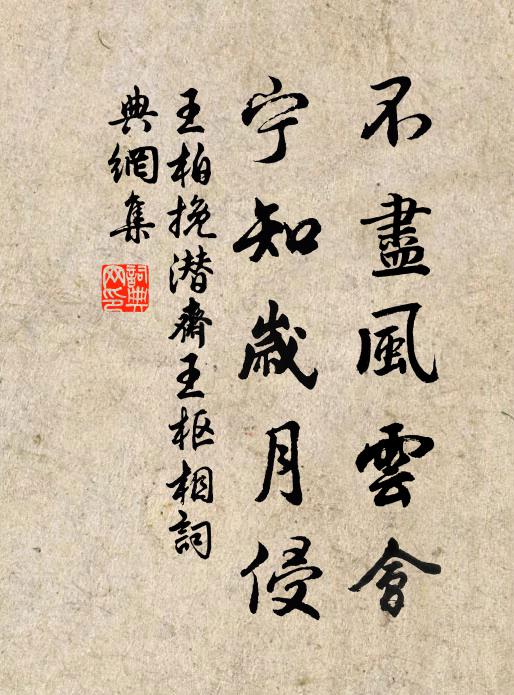 不盡風雲會
宁知歲月侵
王柏挽潜齋王枢相詞
典網集
詞典網印